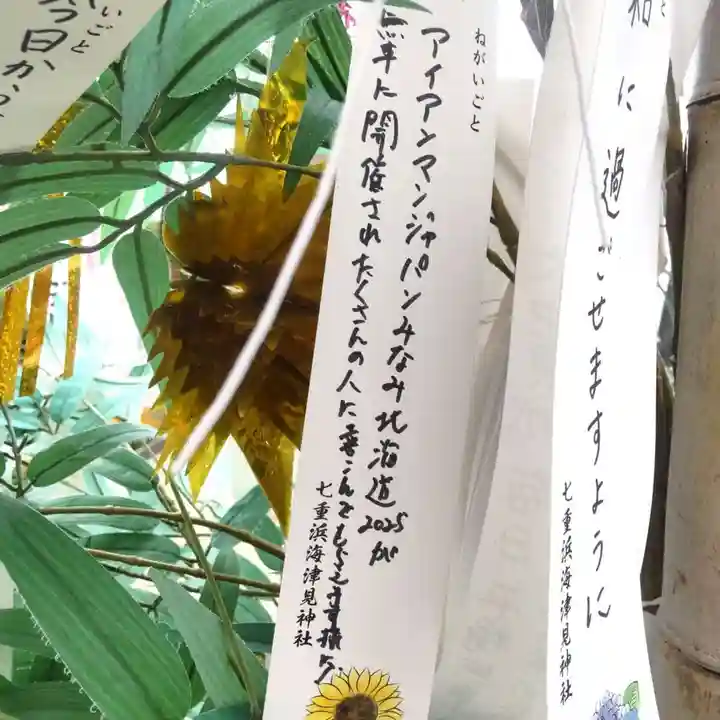 ねがいごと
アイアンマンジャパンみなみ北海道2025が
無事に開催されたくさんの人に喜こんでもらえます様に
七重浜海津見神社
に過ごせますように
七重浜海津見神社
いごと
今日か